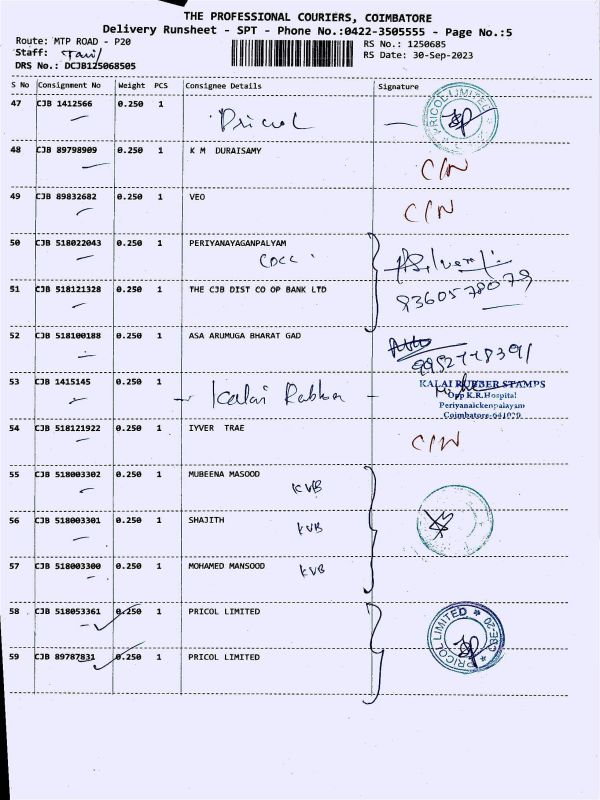 THE PROFESSIONAL COURIERS, COIMBATORE
Delivery Runsheet - SPT - Phone No.:0422-3505555 - Page No.:5
Route: MTP ROAD - P20 RS No.: 1250685
Staff: RS Date: 30-Sep-2023
DRS No.: DCJB125068505
S No Consignment No Weight PCS Consignee Details Signature
47 CJB 1412566 0.250 1 Pricol PRICOL LIMITED
48 CJB 89798909 0.250 1 K M DURAISAMY C/N
49 CJB 89832682 0.250 1 VEO C/N
50 CJB 518022043 0.250 1 PERIYANAYAGANPALYAM
51 CJB 518121328 0.250 1 THE CJB DIST CO OP BANK LTD 9360578079
52 CJB 518100188 0.250 1 ASA ARUMUGA BHARAT GAD 9952778391
53 CJB 1415145 0.250 1 - Kalai Rabber - KALAI RUBBER STAMPS
Opp K.R.Hospital
Periyanaickenpalayam
Coimbatore-641020
54 CJB 518121922 0.250 1 IYVER TRAE C/N
55 CJB 518003302 0.250 1 MUBEENA MASOOD KVB
56 CJB 518003301 0.250 1 SHAJITH KVB
57 CJB 518003300 0.250 1 MOHAMED MANSOOD KVB
58 CJB 518053361 0.250 1 PRICOL LIMITED PRICOL LIMITED * CBE-20 *
59 CJB 89787831 0.250 1 PRICOL LIMITED